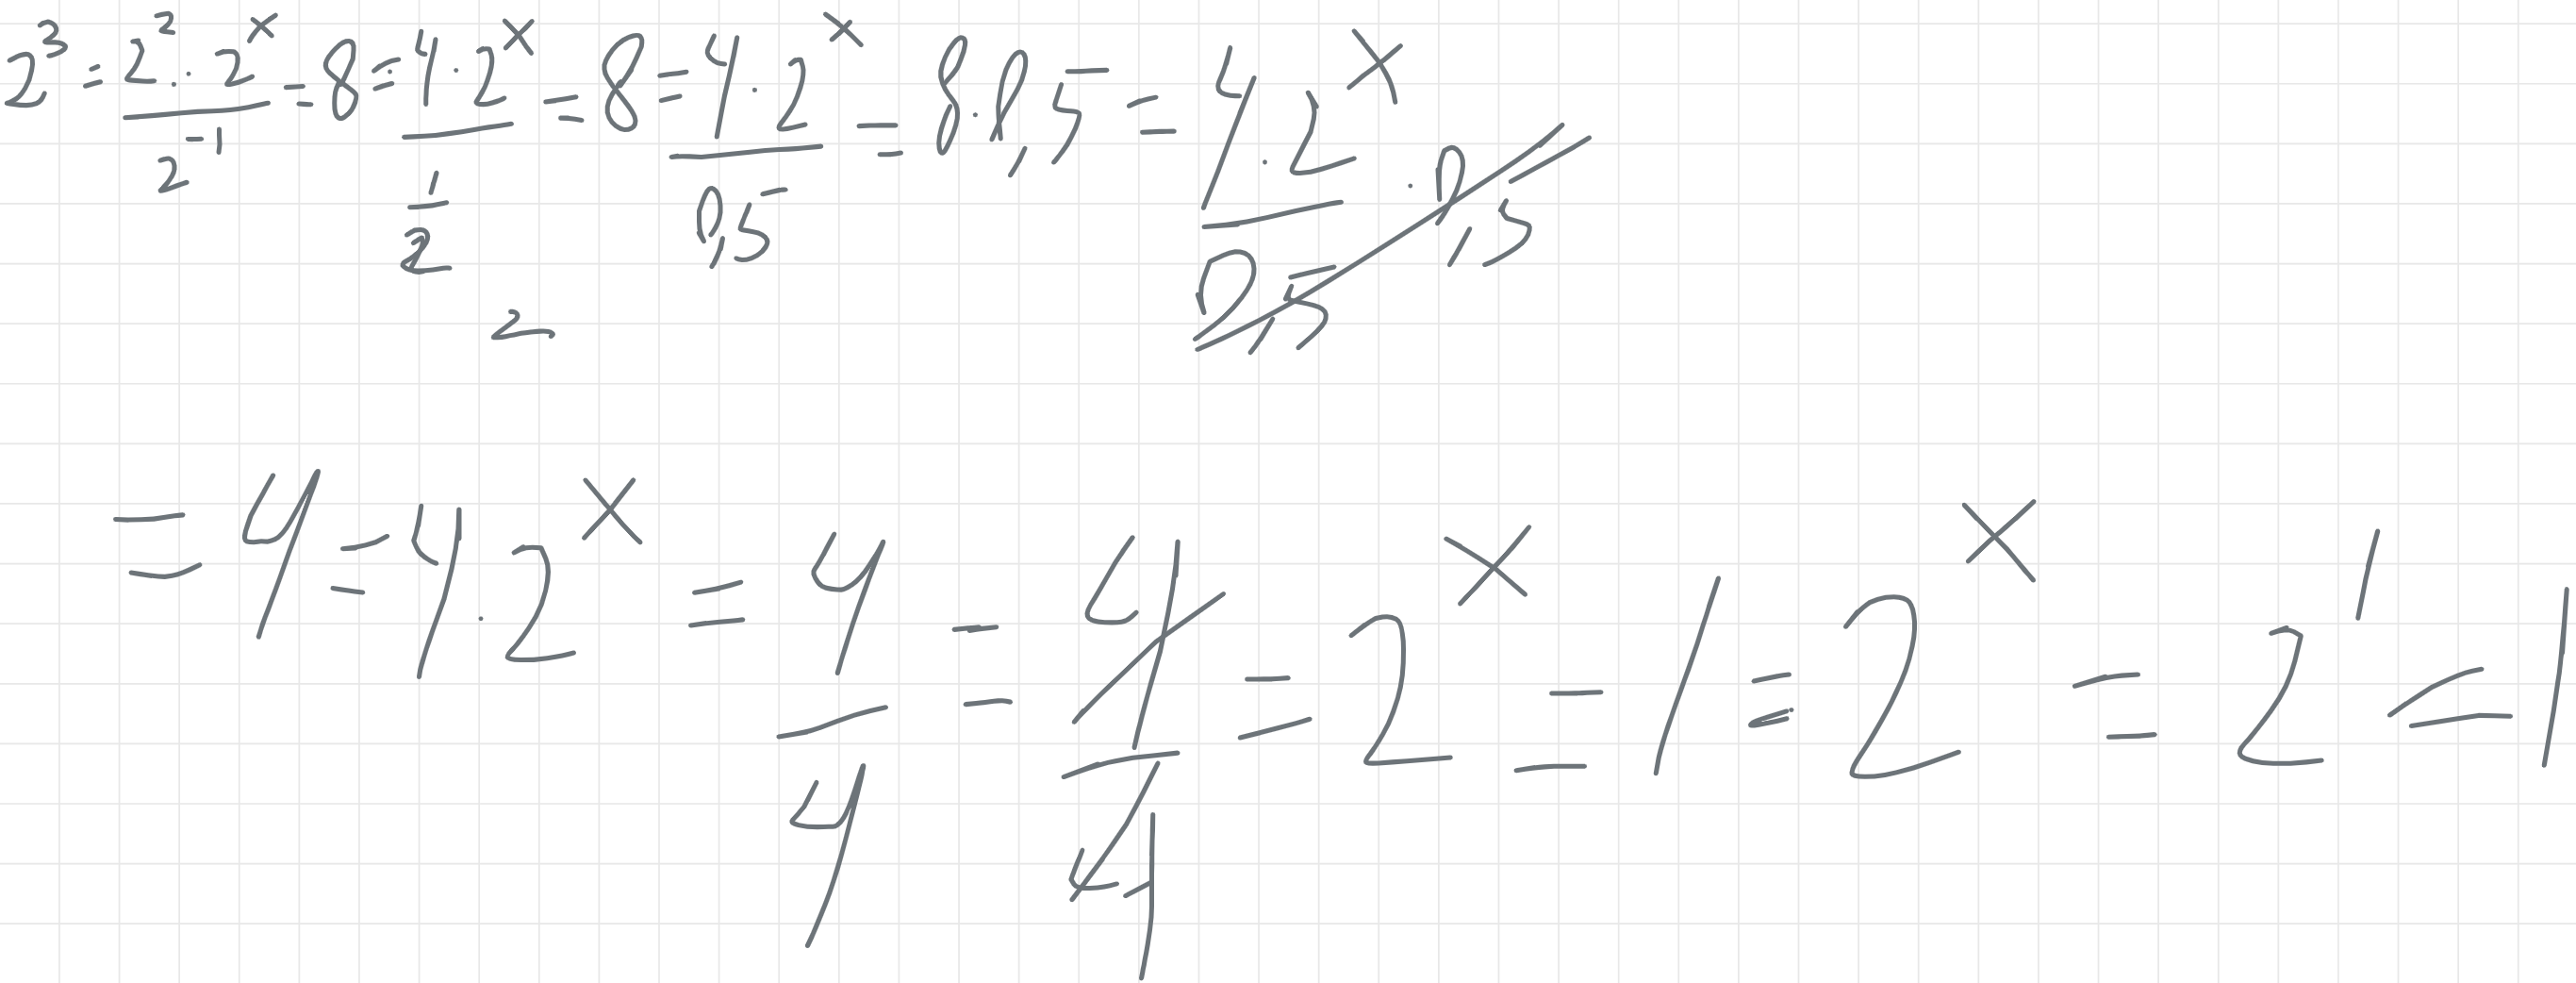 2³ = 2² · 2ˣ / 2⁻¹ = 8 = 4 · 2ˣ / 1/2 = 8 = 4 · 2ˣ / 0,5 = 8 · 0,5 = 4 · 2ˣ / 0,5 · 0,5
2
= 4 = 4 · 2ˣ = 4/4 = 4/4 = 2ˣ = 1 = 2ˣ = 2¹ = 1